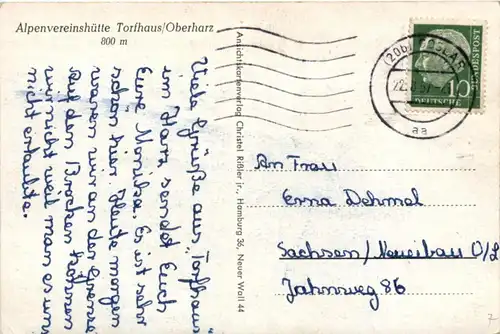 Alpenvereinshütte Torfhaus/Oberharz
800 m
Viele Grüße aus „Torfhaus"
im Harz sendet Euch
Eure Monika. Es ist sehr
schön hier. Heute morgen
waren wir an der Grenze
auf den Brocken können
wir nicht weil man es uns
nicht erlaubte.
Ansichtskartenverlag Christel Rißler jr., Hamburg 36, Neuer Wall 44
(20b) GOSLAR
aa
10
DEUTSCHE
BUNDESPOST
An Frau
Erna Dehmel
Sachsen/Neueibau O/L
Jahnweg 86
7